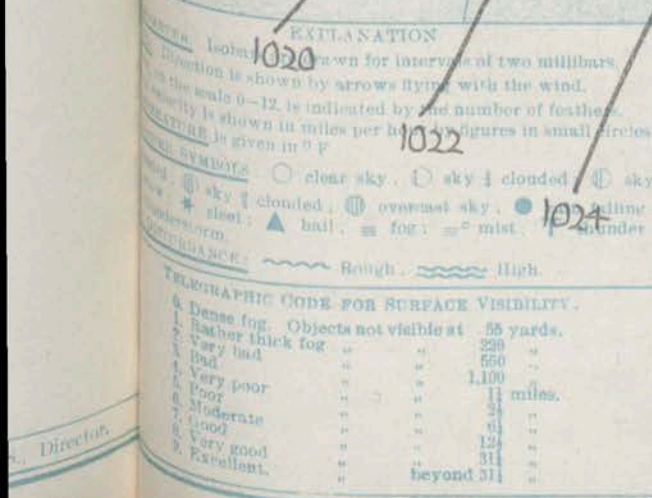 EXPLANATION
Isobars drawn for intervals of two millibars.
Direction is shown by arrows flying with the wind.
on the scale 0–12, is indicated by the number of feathers.
velocity is shown in miles per hour by figures in small circles
is given in ° F
SYMBOLS. clear sky, sky clouded, sky
sky clouded, overcast sky, falling
sleet; hail, fog; mist, thunder
thunderstorm.
DISTURBANCE: Rough. High.
1020
1022
1024
TELEGRAPHIC CODE FOR SURFACE VISIBILITY.
0. Dense fog. Objects not visible at 55 yards.
1. Rather thick fog " " 220 "
2. Very bad " " 550 "
3. Bad " " 1,100 "
4. Very poor " " 1¼ miles.
5. Poor " " 2½ "
6. Moderate " " 6¼ "
7. Good " " 12½ "
8. Very good " " 31¼ "
9. Excellent. " beyond 31¼ "
Director.